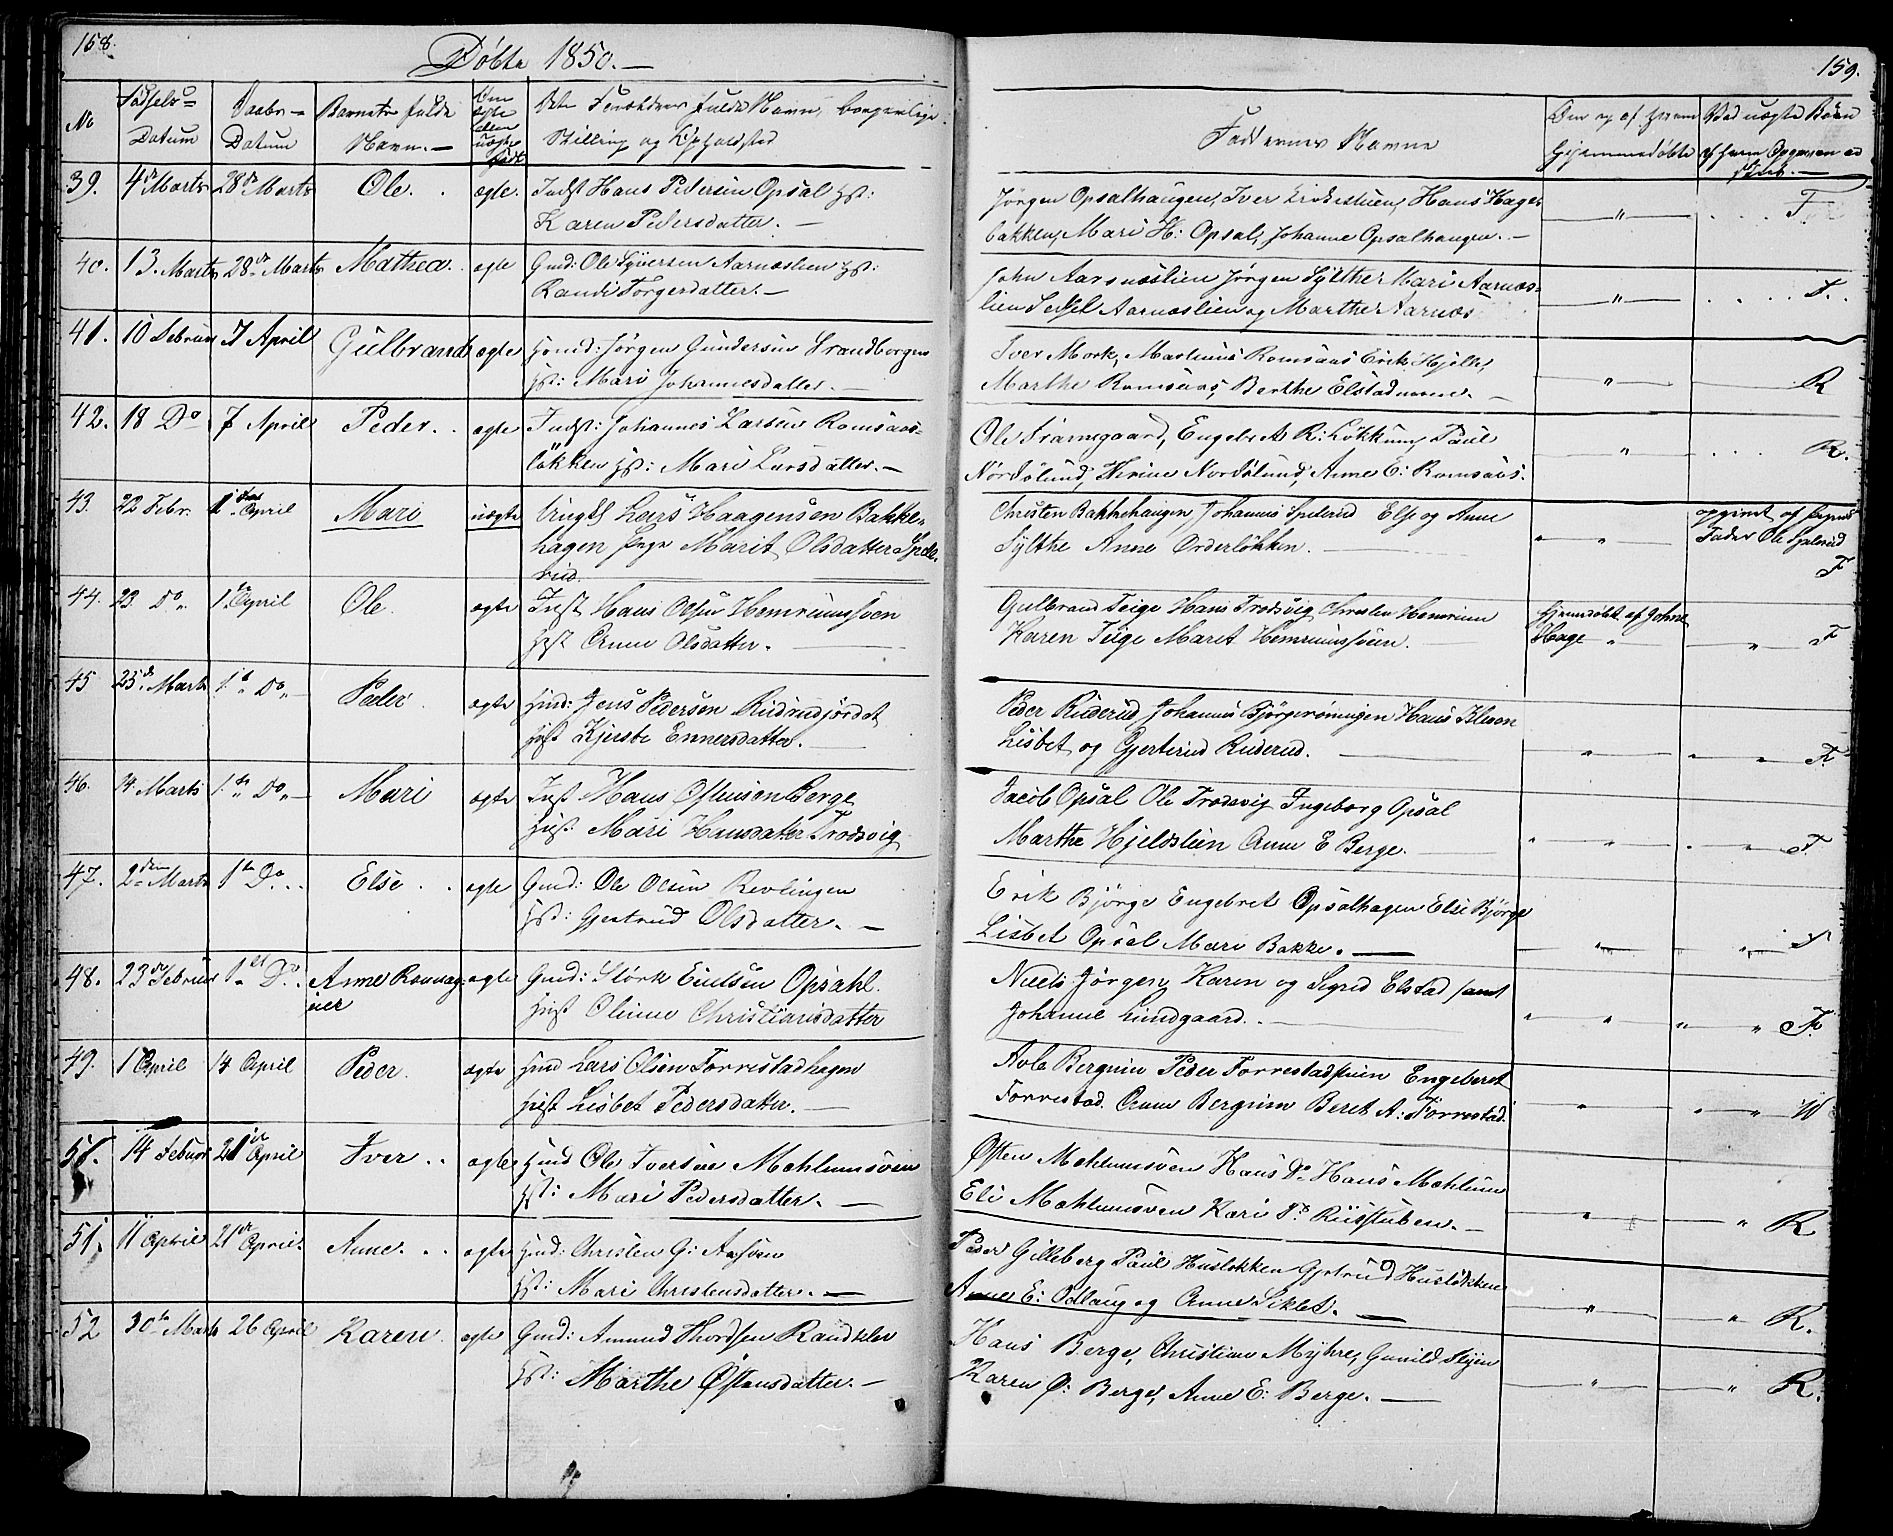 158.
Døbte 1850.—
No
Fødsels-
Datum
Daabs-
Datum
Barnets fulde
Navn.—
Om
ægte
eller
uægte
født
Forældres fulde Navn, borgerlige
Stilling og Opholdsted
39. 4de Marts 28de Marts Ole. ægte. Indst Hans Pedersen Opsal Hst:
Karen Pedersdatter.—
40. 13. Marts 28de Marts Mathea. ægte Gmd: Ole Syversen Aarnæslien Hst:
Randi Torgersdatter.—
41. 10 Februar 7 April Gulbrand ægte Hsmd: Jørgen Gundersen Strandborgen
Hst: Mari Johannesdatter.—
42. 18 Do 7 April Peder. ægte Indst: Johannes Larsen Romsaas-
løkken Hst: Mari Larsdatter.—
43. 22 Febr. 1ste April Mari uægte Ungk Lars Haagensen Bakke-
hagen Pige Marit Olsdatter Spile-
rud.
44. 23 Do. 1ste April Ole. ægte Inst Hans Olsen Homrumssveen
Hst Anne Olsdatter.—
45 25de Marts 1ste Do. Peder ægte Hmd: Jens Pedersen Rudrudjordet
Hst Kjersti Ennersdatter.—
46. 14 Marts 1ste Do.— Mari ægte Inst Hans Ostensen Berge
Hust: Mari Hansdatter Trodsvig
47. 2den Marts 1ste Do. Else. ægte Gmd: Ole Olsen Revlingen
Hst: Gjertrud Olsdatter.—
48. 23de Februar 1st Do. Anne Ronnog ægte Gmd: Størk Opsahl.
Hust Oline Christiansdatter
49. 1 April 14 April Peder. ægte Hmd Lars Olsen Forrestadhagen
Hust Lisbet Pedersdatter.—
50. 14 Februar 21de April Iver.. ægte Hmd Ole Iversen Mæhlumsveen
Hst: Mari Pedersdatter.—
51. 11 April 21de April. Anne.. ægte Hmd: Christen G: Aassveen
Hst: Mari Christensdatter.—
52 30te Marts 26 April Karen. ægte Gmd: Amund Thordsen Randklev
Hst: Marthe Østensdatter.—
159.
Faddernes Navne
Om og af hvem
Hjemmedøbte
Ved uægte Børn
af hvem Opgaven er
skeet.—
Jørgen Opsalhaugen, Iver Kirkestuen, Hans Hage-
bakken, Mari H: Opsal, Johanne Opsalhaugen.— " F.
John Aarnæslien Jørgen Sylthe Mari Aarnæs-
lien Sidsel Aarnæslien og Marthe Aarnæs " F.
Iver Mork, Mathias Romsaas Erik Hjelle,
Marthe Romsaas, Berthe Elstadmoen.— " R
Ole Framgaard, Engebret R: Løkken, Paul
Nordslund, Kirine Nordslund, Anne E: Romsaas. " R.
Christen Bakkehaugen Johannes Spilerud Else og Anne
Sylthe Anne Orderløkken. " " opgivet af Pigens
Fader Ole Spilerud
F
Gulbrand Teige Hans Trodsvig Christen Homrum
Karen Teige Maret Homrumssveen. Hjemmedøbt af Johne
Hage " " F
Peder Ruderud Johannes Bjørgeroningen Hans Kleven
Lisbet og Gjertrud Ruderud. " " " F.
Jacob Opsal Ole Trodsvig Ingeborg Opsal
Marthe Hjeldslien Anne E Berge. " " " " F.
Erik Bjørge Engebret Opsalhagen Else Bjørge
Lisbet Opsal Mari Bakke.— " " F
Niels Jørgen, Karen og Sigrid Elstad samt
Johanne Lundgaard. " " " " F.
Avle Bergum Peder Forrestadstuen Engebret
Forrestad. Anne Bergum Beret A: Forrestad. " " " W
Østen Mæhlumsveen Hans Do Hans Mæhlum
Eli Mæhlumsveen Kari Do Riisstuben.— " " R
Peder Gilleberg Paul Husløkken Gjetrud Husløkken
Anne E: Odlaug og Anne Liklet.— " " R.
Hans Berge, Christian Myhre, Gunild Stejen
Karen Ø: Berge, Anne E: Berge.— " " R.